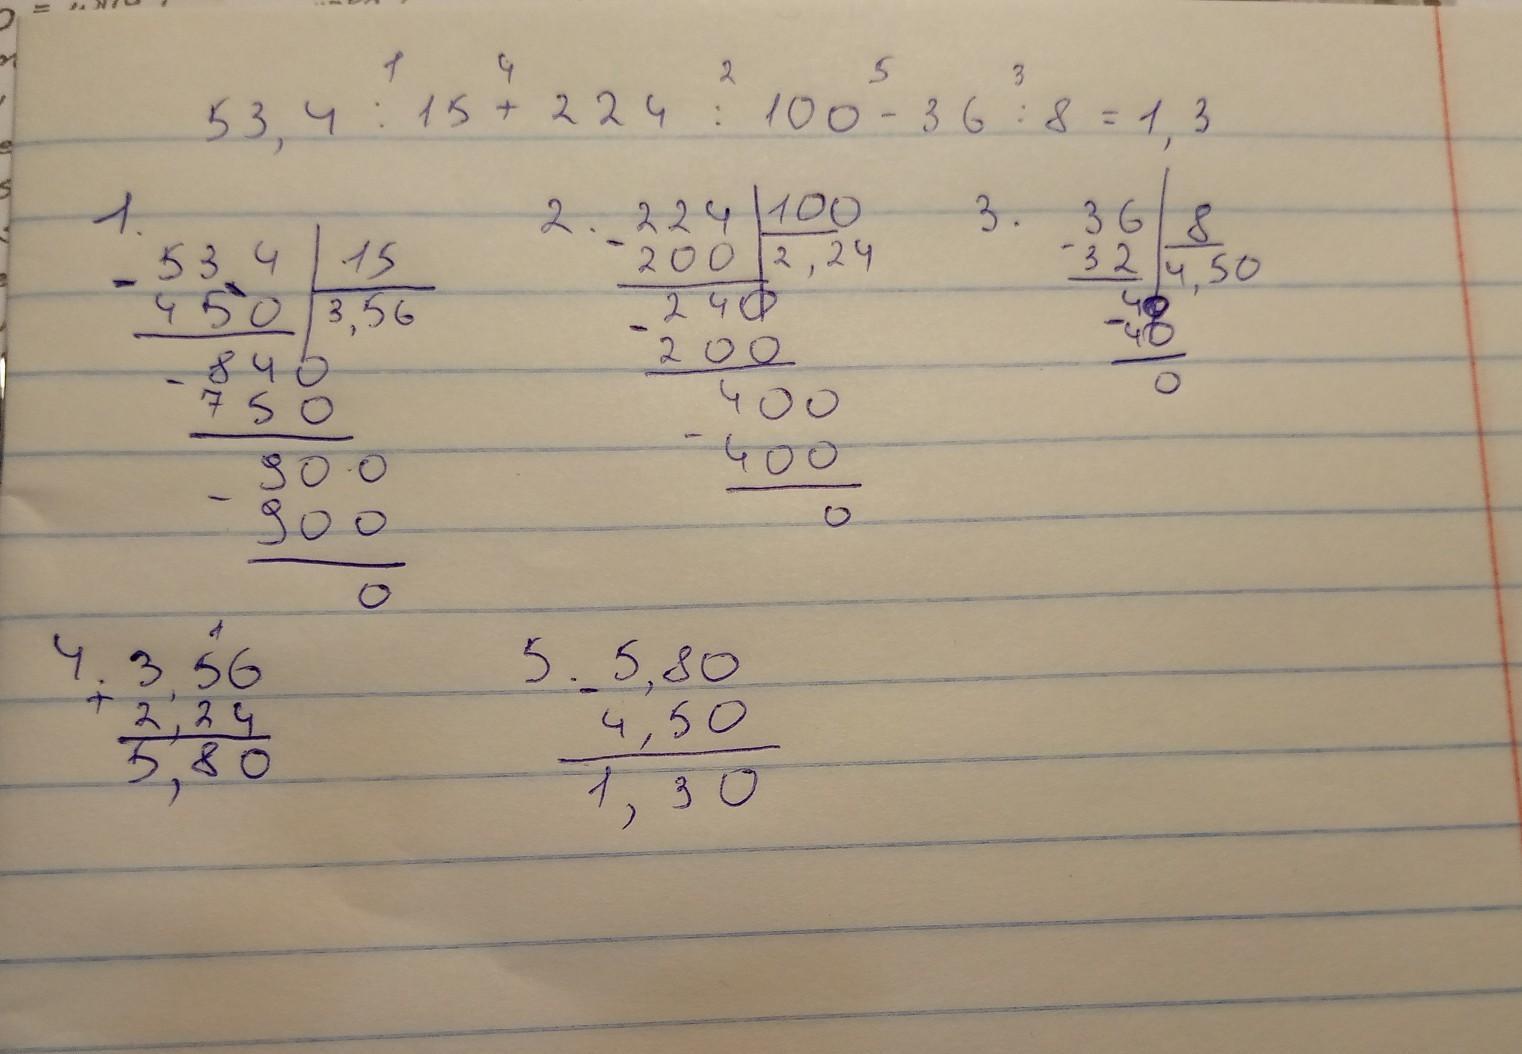 1 4 2 5 3
53,4 : 15 + 224 : 100 - 36 : 8 = 1,3
1.
- 53,4 | 15
450 | 3,56
- 840
750
- 900
900
0
2. - 224 | 100
200 | 2,24
- 240
200
- 400
400
0
3. - 36 | 8
32 | 4,50
- 40
40
0
1
4. + 3,56
2,24
5,80
5. - 5,80
4,50
1,30